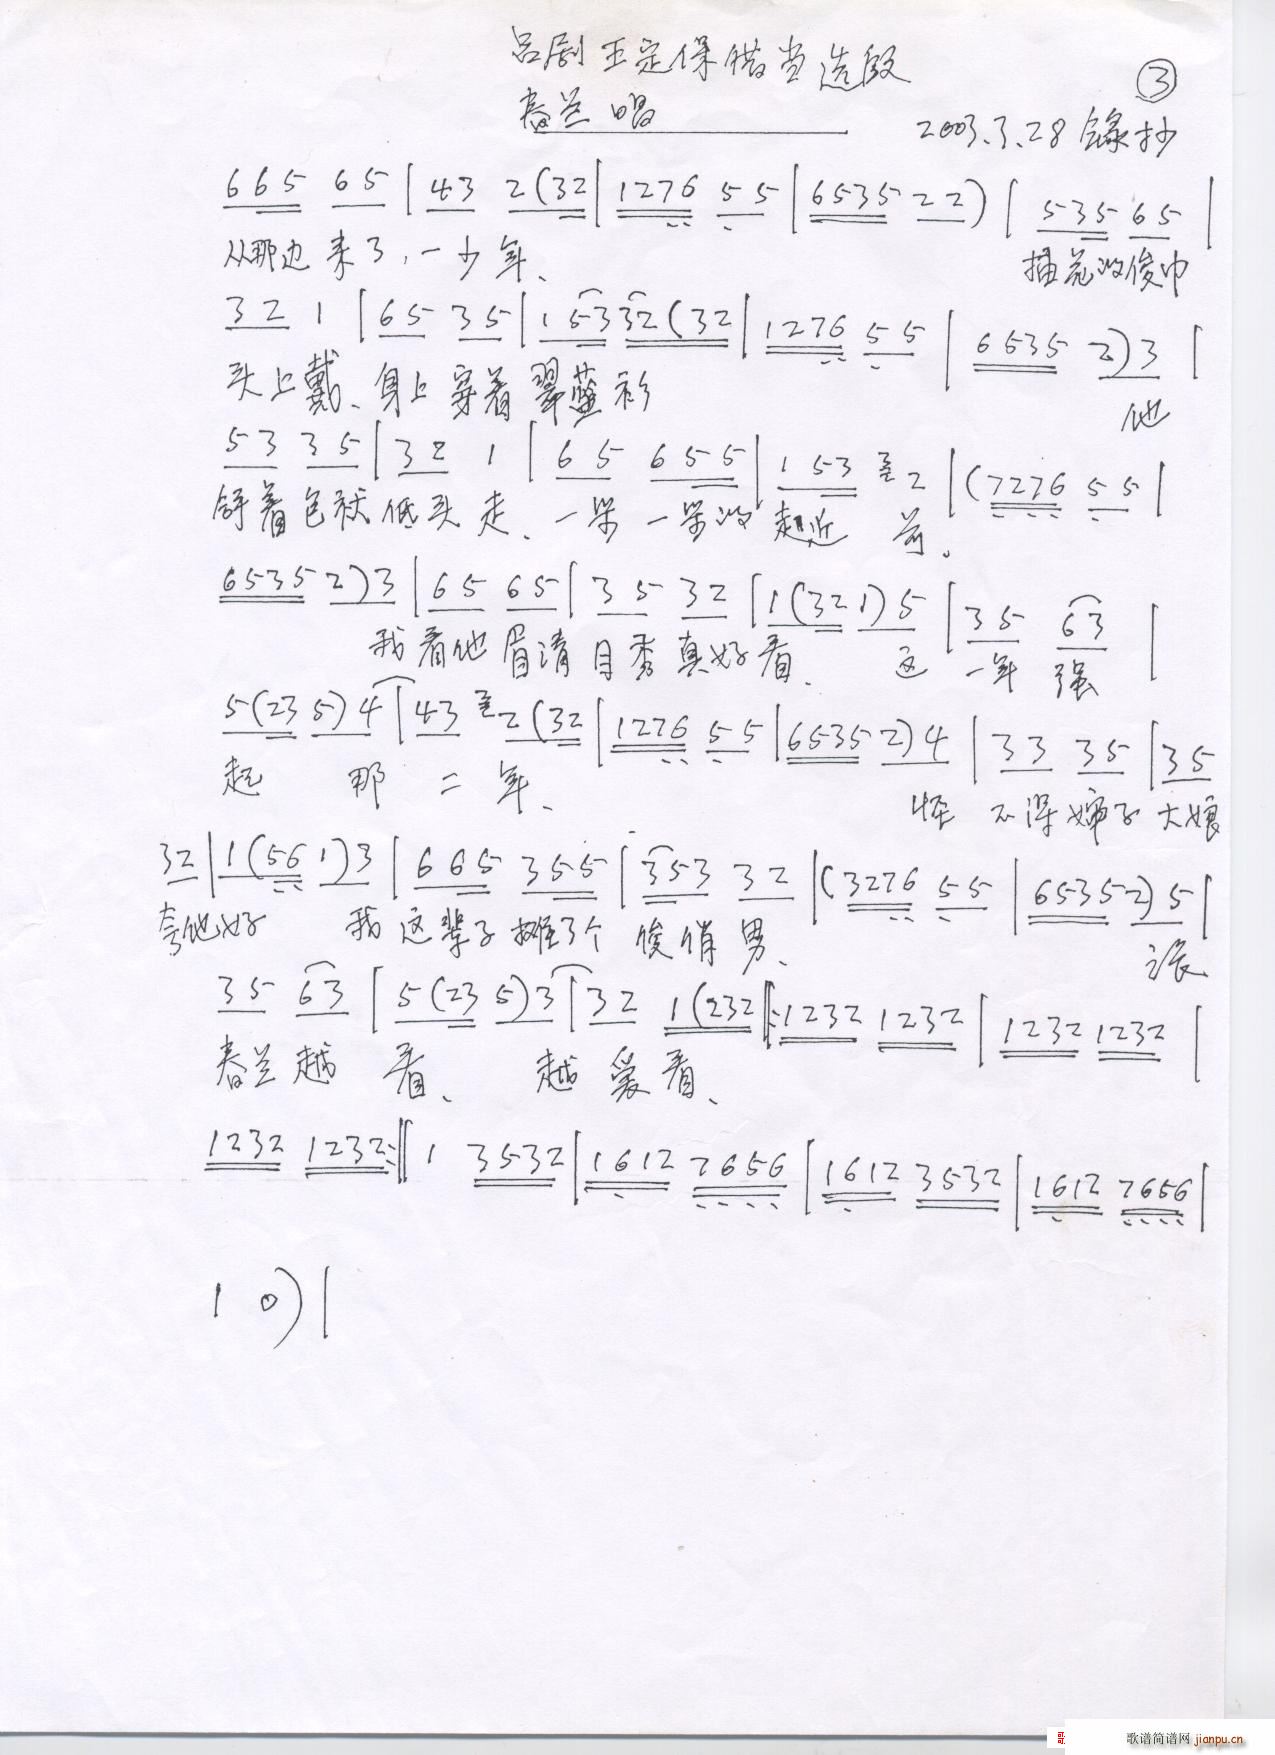 吕剧 王定保借当选段
③
春兰唱 2003.3.28 录抄
665 65 | 43 2(32 | 1276 55 | 6535 22) | 535 65 |
从那边来了,一少年、 插花的俊巾
32 1 | 65 35 | 1 53 32(32 | 1276 55 | 6535 2)3 |
头上戴、身上穿着翠蓝衫 他
53 35 | 32 1 | 65 655 | 1 53 2 | (7276 55 |
着包袱低头走、一步一步的走近 前。
6535 2)3 | 65 65 | 35 32 | 1(32 1)5 | 35 63 |
我看他眉清目秀真好看、 这一年 强
5(23 5)4 | 43 2(32 | 1276 55 | 6535 2)4 | 33 35 | 35
起 那 二 年、 怪 不得婶子大娘
32 | 1(56 1)3 | 665 355 | 353 32 | (3276 55 | 6535 2)5 |
夸他好 我这辈子摊了个 俊俏男、
35 63 | 5(23 5)3 | 32 1(232 ‖: 1232 1232 | 1232 1232 |
春兰越 看、 越 爱看、
1232 1232 :‖ 1 3532 | 1612 7656 | 1612 3532 | 1612 7656 |
1 0) |
歌谱简谱网 jianpu.cn